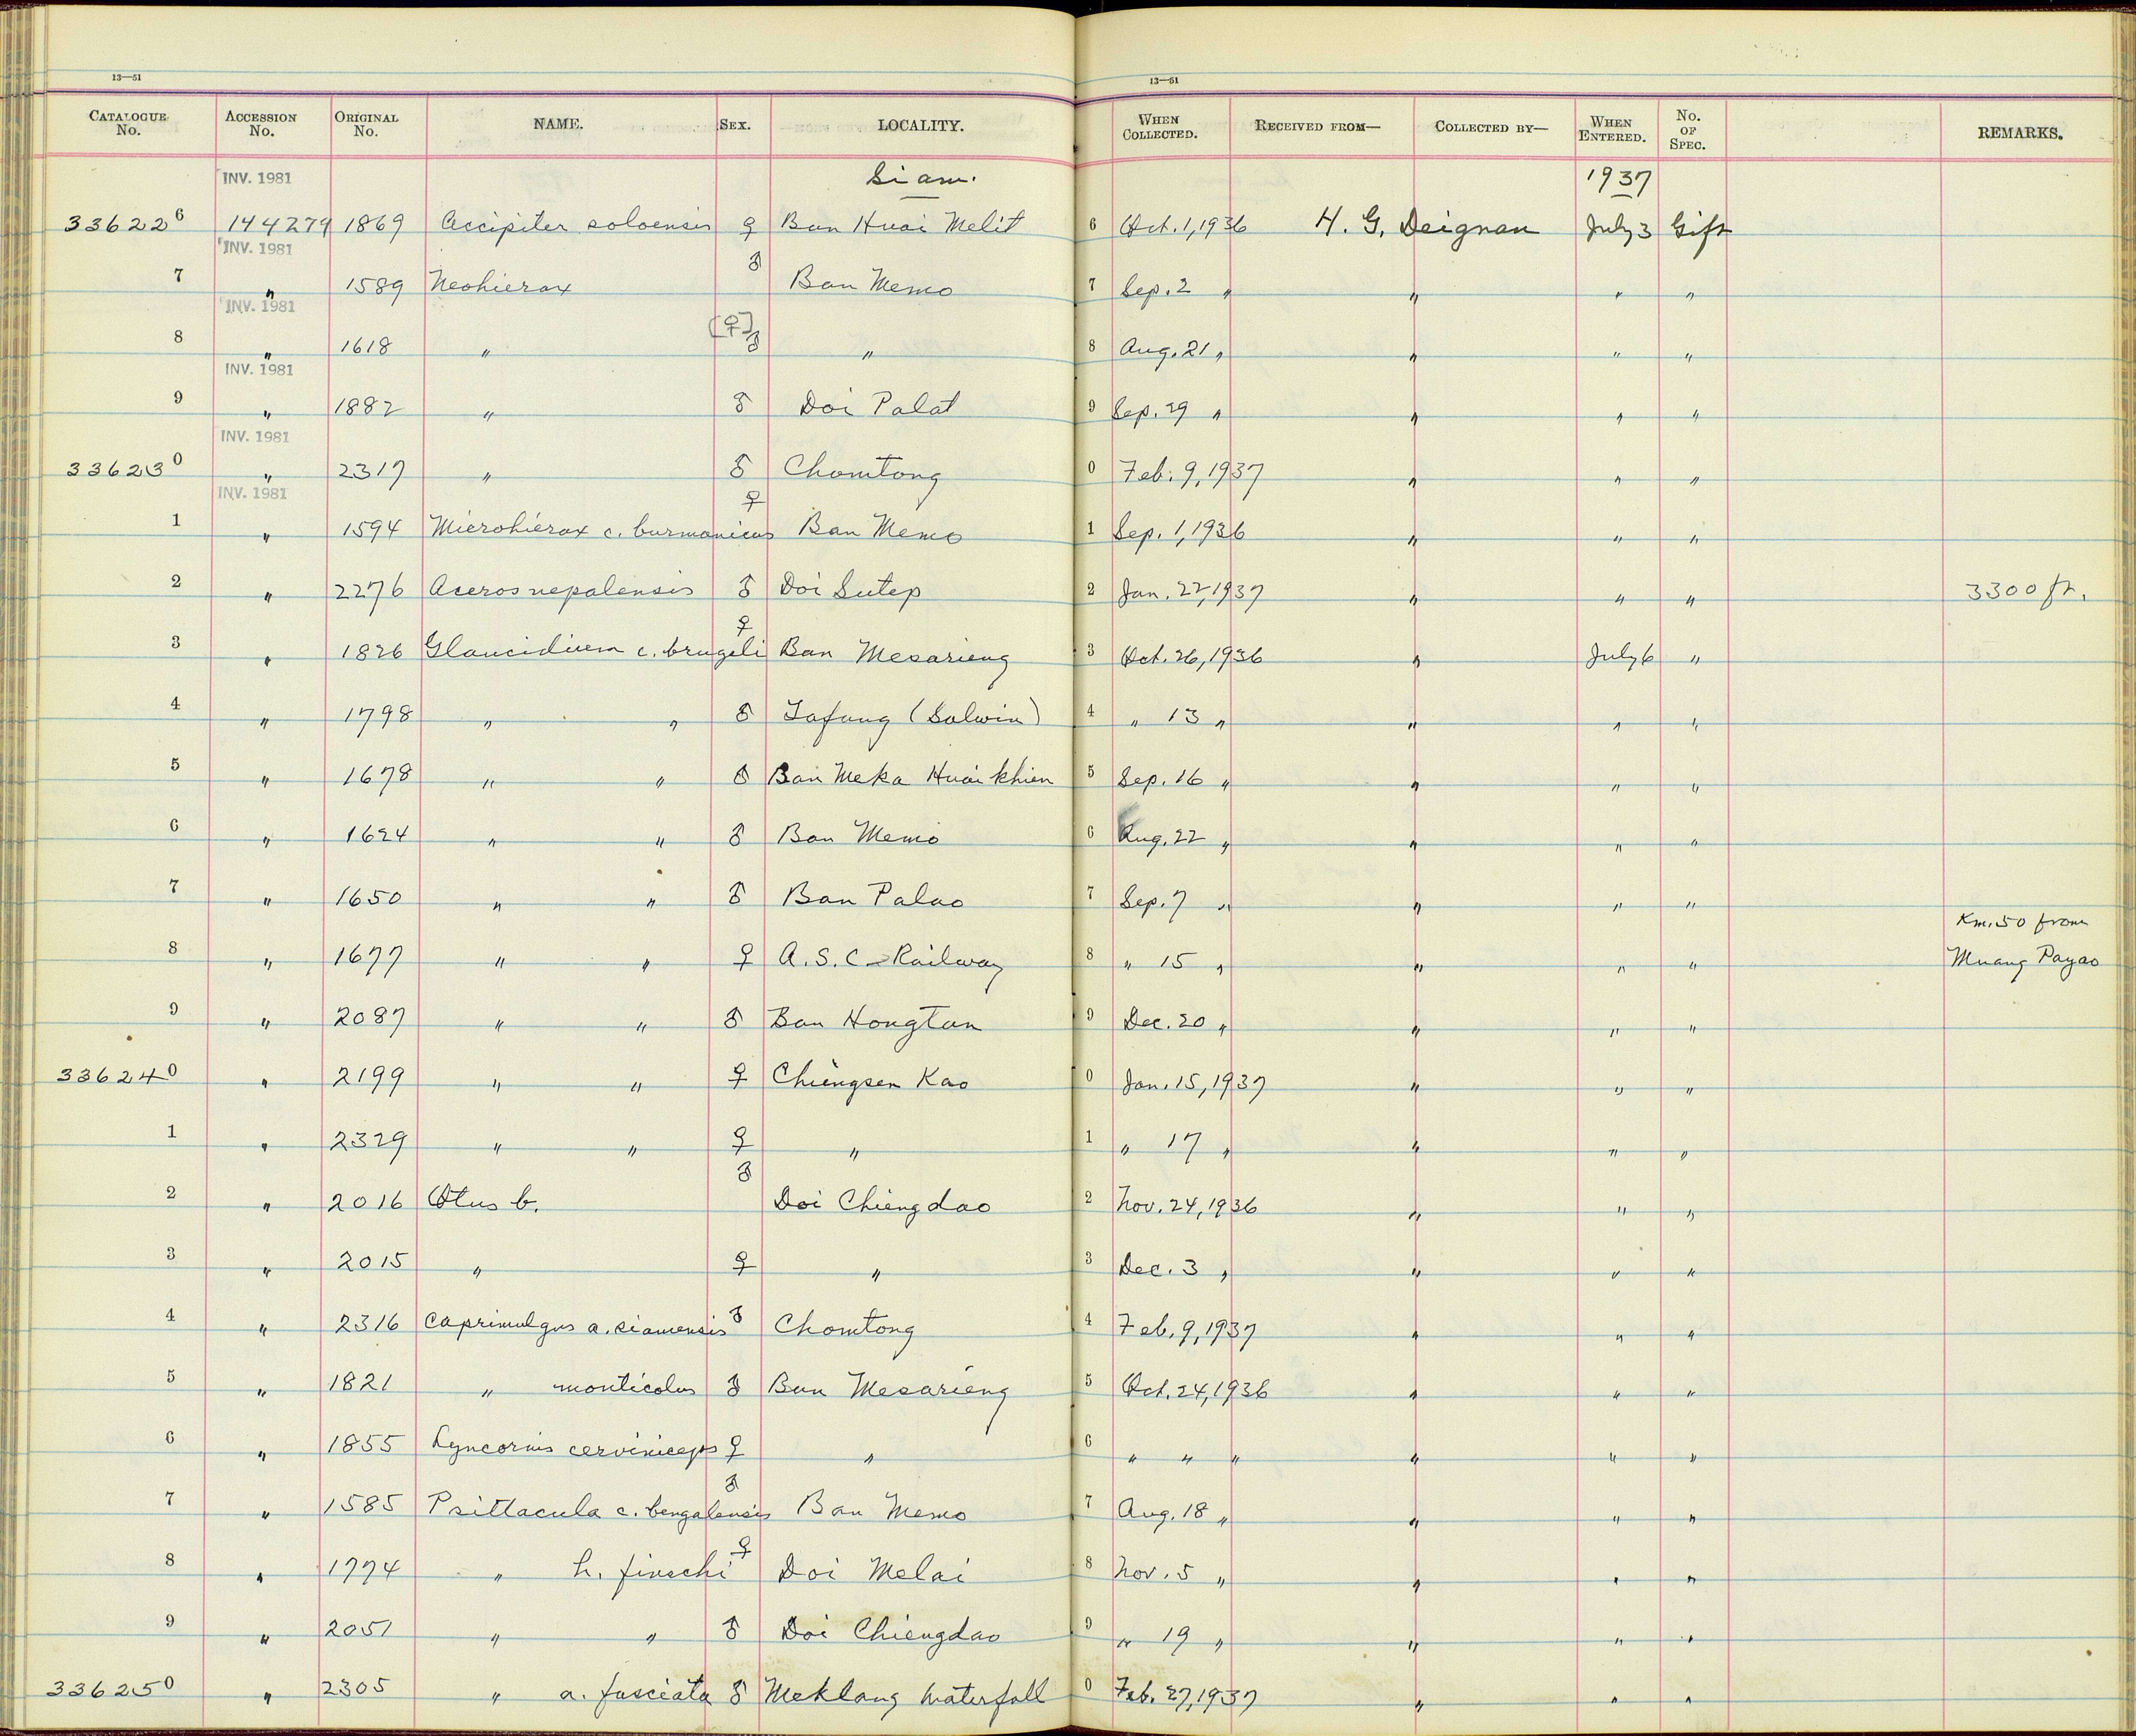 13—51 13—51
CATALOGUE No. ACCESSION No. ORIGINAL No. NAME. SEX. LOCALITY. WHEN COLLECTED. RECEIVED FROM— COLLECTED BY— WHEN ENTERED. No. OF SPEC. REMARKS.
INV. 1981 Siam. 1937
336226 144279 1869 Accipiter soloensis ♀ Ban Huai Melit 6 Oct. 1, 1936 H. G. Deignan July 3 Gift
INV. 1981
7 " 1589 Neohierax ♂ Ban Memo 7 Sep. 2 " " " "
INV. 1981
8 " 1618 " [♀] ♂ " 8 Aug. 21 " " " "
INV. 1981
9 " 1882 " ♂ Doi Palat 9 Sep. 29 " " " "
INV. 1981
336230 " 2317 " ♂ Chomtong 0 Feb. 9, 1937 " " "
INV. 1981
1 " 1594 Microhierax c. burmanicus ♀ Ban Memo 1 Sep. 1, 1936 " " "
2 " 2276 Aceros nepalensis ♂ Doi Sutep 2 Jan. 22, 1937 " " " 3300 ft.
3 " 1826 Glaucidium c. brugeli ♀ Ban Mesarieng 3 Oct. 26, 1936 " July 6 "
4 " 1798 " " ♂ Tafang (Salwin) 4 " 13 " " " "
5 " 1678 " " ♂ Ban Meka Huai khien 5 Sep. 16 " " " "
6 " 1624 " " ♂ Ban Memo 6 Aug. 22 " " " "
7 " 1650 " " ♂ Ban Palao 7 Sep. 7 " " " "
Km. 50 from
8 " 1677 " " ♀ A. S. C – Railway 8 " 15 " " " " Muang Payao
9 " 2087 " " ♂ Ban Hongtan 9 Dec. 20 " " " "
336240 " 2199 " " ♀ Chiengsen Kao 0 Jan. 15, 1937 " " "
1 " 2329 " " ♀ " 1 " 17 " " " "
2 " 2016 Otus b. ♂ Doi Chiengdao 2 Nov. 24, 1936 " " "
3 " 2015 " ♀ " 3 Dec. 3 " " " "
4 " 2316 Caprimulgus a. siamensis ♂ Chomtong 4 Feb. 9, 1937 " " "
5 " 1821 " monticolus ♂ Ban Mesarieng 5 Oct. 24, 1936 " " "
6 " 1855 Lyncornis cerviniceps ♀ " 6 " " " " " "
7 " 1585 Psittacula c. bengalensis ♂ Ban Memo 7 Aug. 18 " " " "
8 " 1774 " h. finschi ♀ Doi Melai 8 Nov. 5 " " " "
9 " 2051 " " ♂ Doi Chiengdao 9 " 19 " " " "
336250 " 2305 " a. fasciata ♂ Meklang Waterfall 0 Feb. 27, 1937 " " "